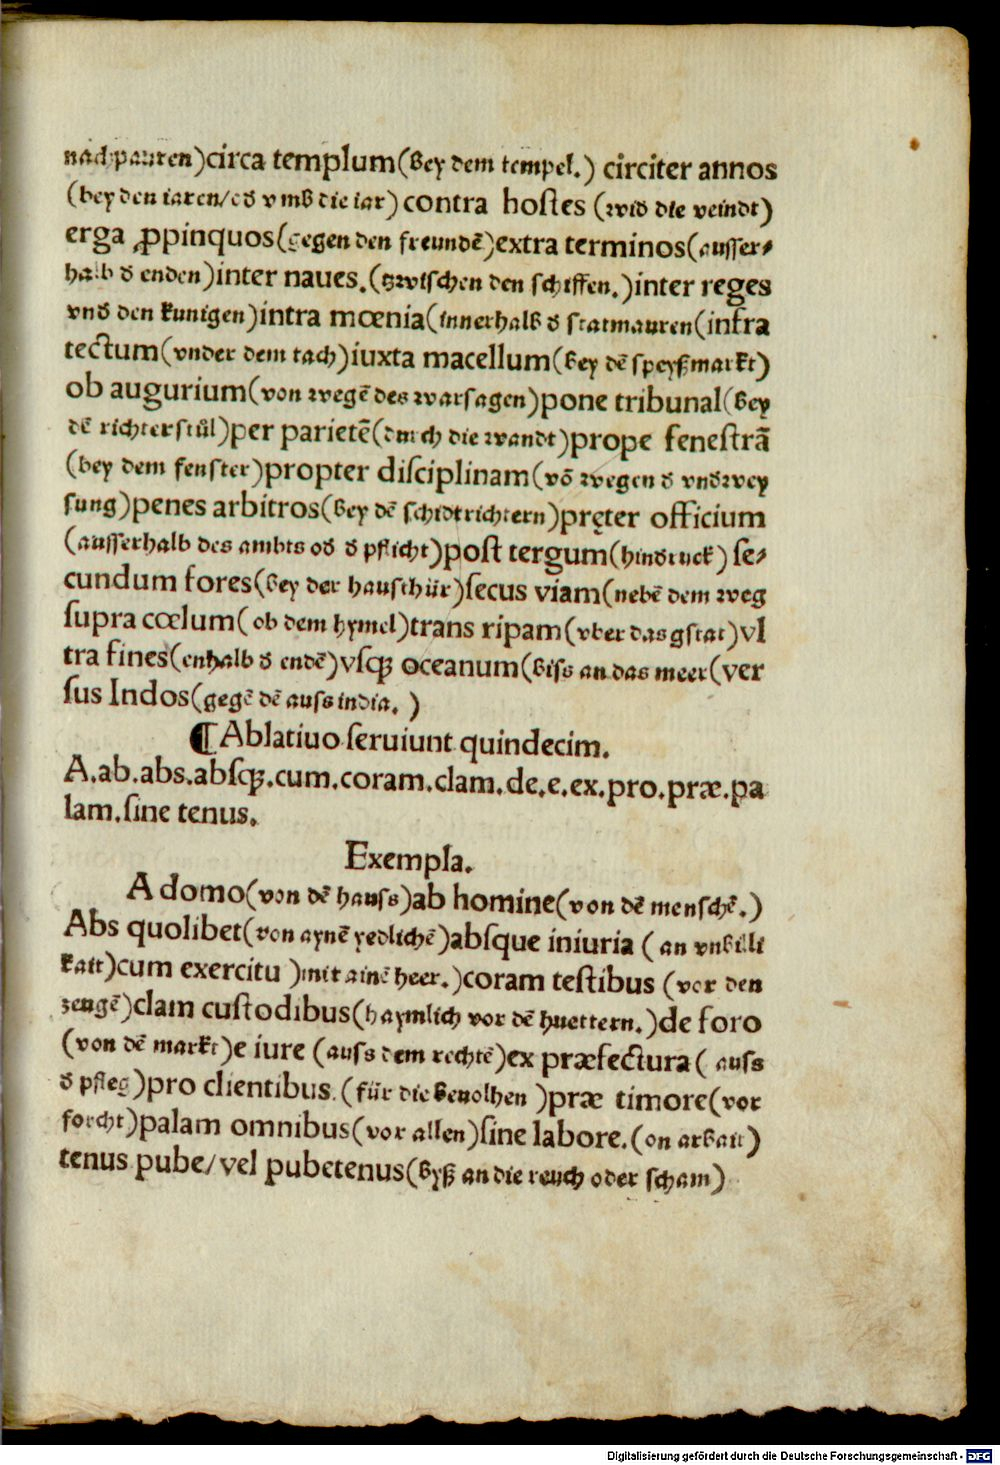 nachpauren)circa templum(bey dem tempel.) circiter annos
(bey den iaren/cð vmb die iar) contra hoſtes (wið die veindt)
erga ꝓpinquos(gegen den freundē)extra terminos(auſſer⸗
halb ð enden)inter naues.(tzwiſchen den ſchiffen.)inter reges
vnð den kunigen)intra mœnia(innerhalb ð ſtatmauren(infra
tectum(vnder dem tach)iuxta macellum(bey dē ſpeyßmarkt)
ob augurium(von wegē des warſagen)pone tribunal(bey
dē richterſtůl)per parietē(durch die wandt)prope feneſtrā
(bey dem fenſter)propter diſciplinam(vō wegen ð vnðwey
ſung)penes arbitros(bey dē ſchidtrichtern)pręter officium
(auſſerhalb des ambts oð ð pflicht)poſt tergum(hinðruck) ſe⸗
cundum fores(bey der hauſthür)ſecus viam(nebē dem weg
ſupra cœlum( ob dem hymel)trans ripam(vber das gſtat)vl
tra fines(enhalb ð endē)vſqꝫ oceanum(biſs an das meer(ver
ſus Indos(gegē dē auſs india. )
¶Ablatiuo ſeruiunt quindecim.
A.ab.abs.abſqꝫ.cum.coram.clam.de.e.ex.pro.præ.pa
lam.ſine tenus.
Exempla.
A domo(von dē hauſs)ab homine(von dē menſchē.)
Abs quolibet(von aynē yedlichē)abſque iniuria ( an vnbilli
kait)cum exercitu )mit ainē heer.)coram teſtibus (vor den
zeugē)clam cuſtodibus(haymlich vor dē huettern.)de foro
(von dē markt)e iure (auſs dem rechtē)ex præfectura( auſs
ð pfleg)pro clientibus.(für die beuolhen )præ timore(vor
forcht)palam omnibus(vor allen)ſine labore.(on arbait)
tenus pube/vel pubetenus(byß an die reuch oder ſcham)
Digitalisierung gefördert durch die Deutsche Forschungsgemeinschaft - DFG